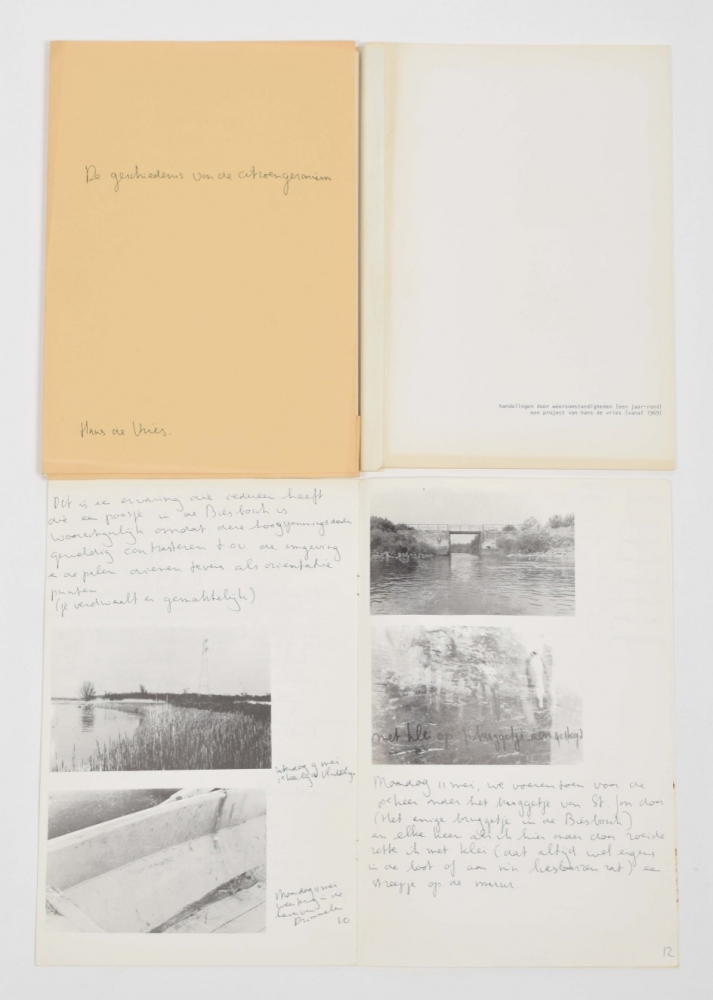 De geschiedenis van de citroengeranium
Hans de Vries.
handelingen door weersomstandigheden (een jaar-rond)
een project van hans de vries (vanaf 1969)
Dit is een ervaring die iedereen heeft
die een poosje in de Biesbosch is
waarschijnlijk omdat deze hoogspanningsdraden
geweldig contrasteren t.o.v. de omgeving
e de palen dienen tevens als orientatie
punten
(je verdwaalt er gemakkelijk)
zaterdag 9 mei
Maandag 11 mei
in de
haven van
Drimmelen
met klei op 't bruggetje aangelegd
Maandag 11 mei, we voeren toen voor de
keer onder het bruggetje van St. Jan door
(Het enige bruggetje in de Biesbosch)
en elke keer als ik hier onder door roeide
zette ik met klei (dat altijd wel ergens
in de boot of aan m'n lieslaarzen zat) een
streepje op de muur
12